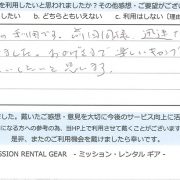 を利用したいと思われましたか？その他感想・ご要望がござい
たい b. どちらともいえない c. 利用はしない（理由
の利用です。前回同様 迅速
ました。おかげさまで楽しいキャンプ
したいと思います。
ました。戴いたご感想・意見を大切に今後のサービス向上に活
になる方への参考の為、当HP上で利用させて戴くことがございます
是非、またのご利用機会を戴けましたら幸いです。
SSION RENTAL GEAR - ミッション・レンタル ギア -